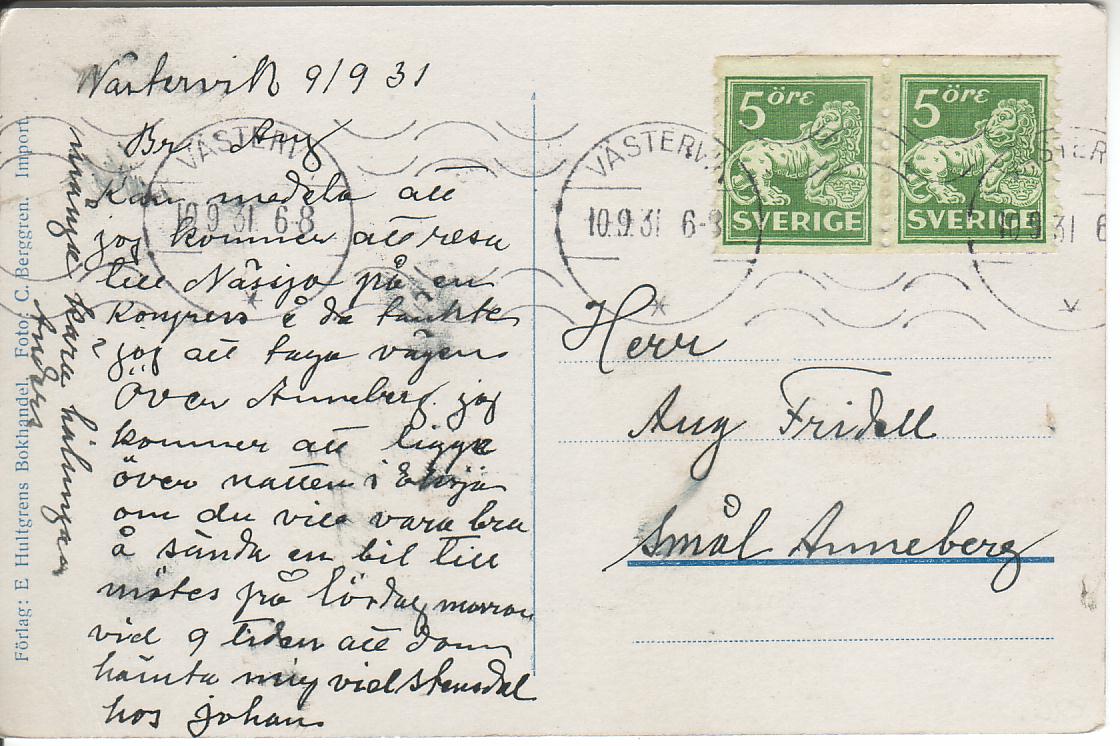 Västervik 9/9 31
Br. Aug
Kan medela att
jag kommer att resa
till Nässjo på en
Kongress å da tänkte
jag att taga vägen
över Anneberg. jag
kommer att ligga
över natten i Eksjä
om du vill vara bra
å sända en bil till
mötes på lördag morron
vid 9 tiden att dom
hämta mig vid Stensdal
hos johan
många kära hälsningar
Anders
Förlag: E Hultgrens Bokhandel. Foto: C. Berggren. Import.
VÄSTERVIK
10.9.31 6-8
VÄSTERVIK
10.9.31 6-8
VÄSTERVIK
10.9.31 6
5 öre
SVERIGE
5 öre
SVERIGE
Herr
Aug Fridell
Smål Anneberg